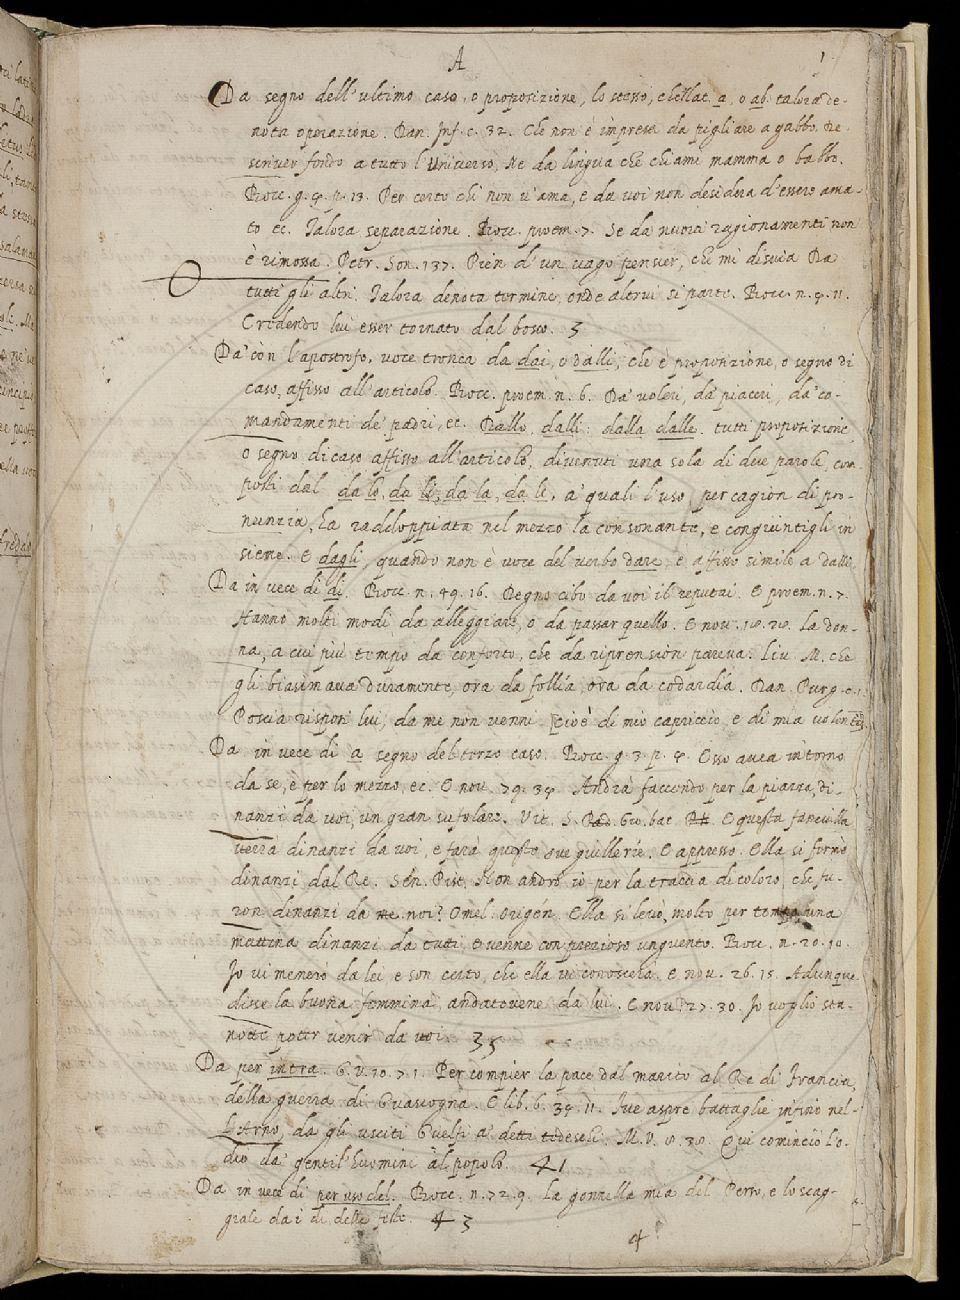 A
1
Da segno dell'ultimo caso, o proposizione, lo stesso, che'l lat. a, o ab. talora de-
nota operazione. Dan. Inf. c. 32. Che non è impresa da pigliare a gabbo De
scriver fondo a tutto l'Universo, Ne da lingua che chiami mamma o babbo.
Bocc. g. 4. p. 13. Per certo chi non v'ama, e da voi non desidera d'essere ama-
to ec. Talora separazione. Bocc. proem. 7. Se da nuovi ragionamenti non
è rimossa. Petr. Son. 137. Pien d'un vago pensier, che mi disvia Da
tutti gli altri. Talora denota termine, onde altrui si parte. Bocc. n. 4. 11.
Credendo lui esser tornato dal bosco. 5
Da' con l'apostrofo, voce tronca da dai, o dalli, che è proposizione, o segno di
caso, affisso all'articolo. Bocc. proem. n. 6. Da' voleri, da' piaceri, da' co-
mandamenti de' padri, ec. Dallo, dalli, dalla dalle. tutti proposizione,
o segno di caso affisso all'articolo, divenuti una sola di due parole, com
posti dal da lo, da li, da la, da le, a' quali l'uso, per cagion di pro-
nunzia, ha raddoppiata nel mezzo la consonante, e congiuntigli in
sieme. E dagli, quando non è voce del verbo dare, è affisso simile a dalli.
Da in vece di di. Bocc. n. 49. 16. Degno cibo da voi il reputai. E proem. n. 7.
Hanno molti modi da alleggiare, o da passar quello. E nov. 18. 28. La don-
na, a cui più tempo da conforto, che da riprension pareva. Liv. M. che
gli biasimava duramente, ora da follía, ora da codardía. Dan. Purg. c. 1.
Poscia risposi lui, da me non venni. [cioè di mio capriccio, e di mia volontà
Da in vece di a segno del terzo caso. Bocc. g. 3. p. 4. Esso avea intorno
da se, e per lo mezzo, ec. E nov. 79. 34. Andrà faccendo per la piazza, di-
nanzi da voi, un gran sufolare. Vit. S. Gio. bat. E questa fanciulla
verrà dinanzi da voi, e farà queste sue giullerie. E appresso. Ella si fermò
dinanzi dal Re. Sen. Pist. Non andrò io per la traccia di coloro, che fu-
ron dinanzi da noi? Omel. Origen. Ella si levò, molto per tempo, una
mattina dinanzi da tutti, e venne con prezioso unguento. Bocc. n. 20. 10.
Io vi menerò da lei e son certo, che ella vi conoscerà. E nov. 26. 15. Adunque
disse la buona femmina, andatevene da lui. E nov. 27. 30. Io voglio sta-
notte poter venir da voi. 35
Da per intra. G. V. 10. 7. 1. Per compier la pace dal marito al Re di Francia,
della guerra di Guascogna. E lib. 6. 34. 11. Fue aspre battaglie infino nel-
l'Arno, da gli usciti Guelfi a' detti tedeschi. M. V. 8. 30. Qui cominciò l'o-
dio da' gentil'huomini al popolo. 41
Da in vece di per uso del. Bocc. n. 72. 9. La gonnella mia del Perso, e lo scag-
giale da i di delle feste. 43
4